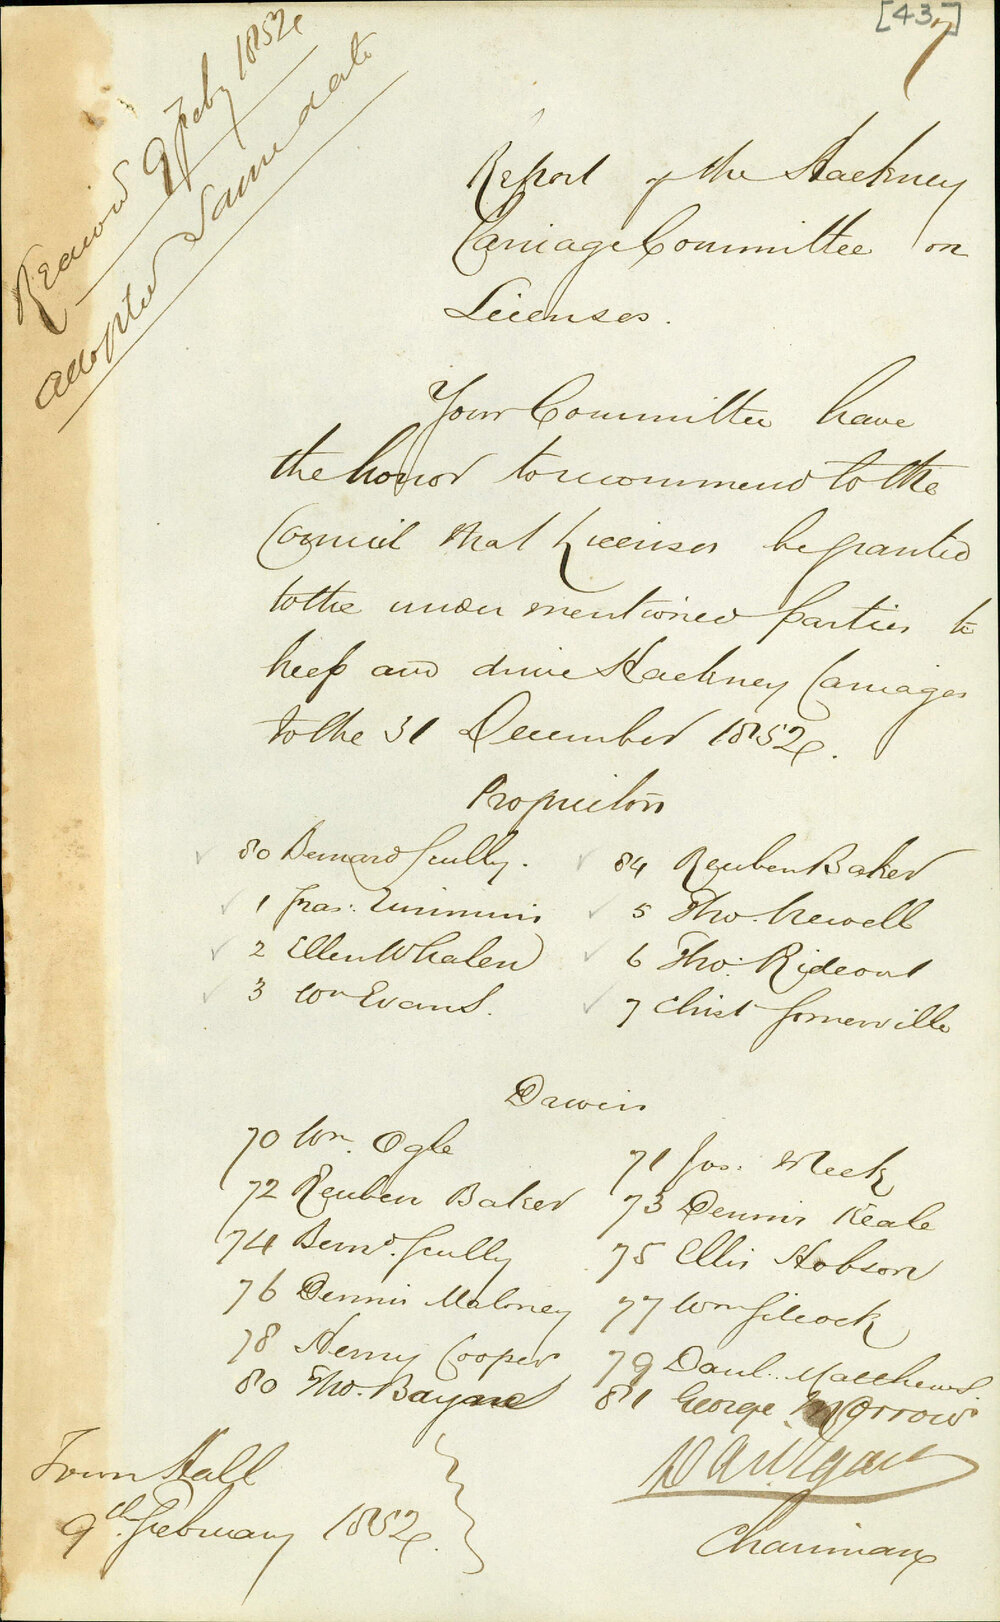 [43]
7
Received 9 Feby 1852
adopted same date
Report of the Hackney
Carriage Committee on
Licenses.
Your Committee have
the honor to recommend to the
Council that Licenses be granted
to the under mentioned parties to
keep and drive Hackney Carriages
to the 31 December 1852.
Proprietors
80 Bernard Scully.
1 Fras: Timmins
2 Ellen Whalen
3 Wm Evans.
84 Reuben Baker
5 Tho. Newell
6 Tho: Rideout
7 Christ Somerville
Drivers
70 Wm. Ogle
71 Jos: Meek
72 Reuben Baker
73 Dennis Keale
74 Bernd. Scully
75 Ellis Hobson
76 Dennis Maloney
77 Wm Silcock
78 Henry Cooper
79 Danl. Matthews
80 Tho. Bayne
81 George Morrow
Town Hall
9th. February 1852.
Chairman